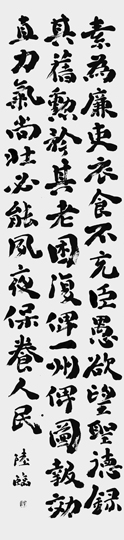 素為廉吏衣食不充臣愚欲望聖德錄
其舊勳矜其老困復俾一州俾圖報効
直力氣尚壯必能夙夜保養人民
陸臨